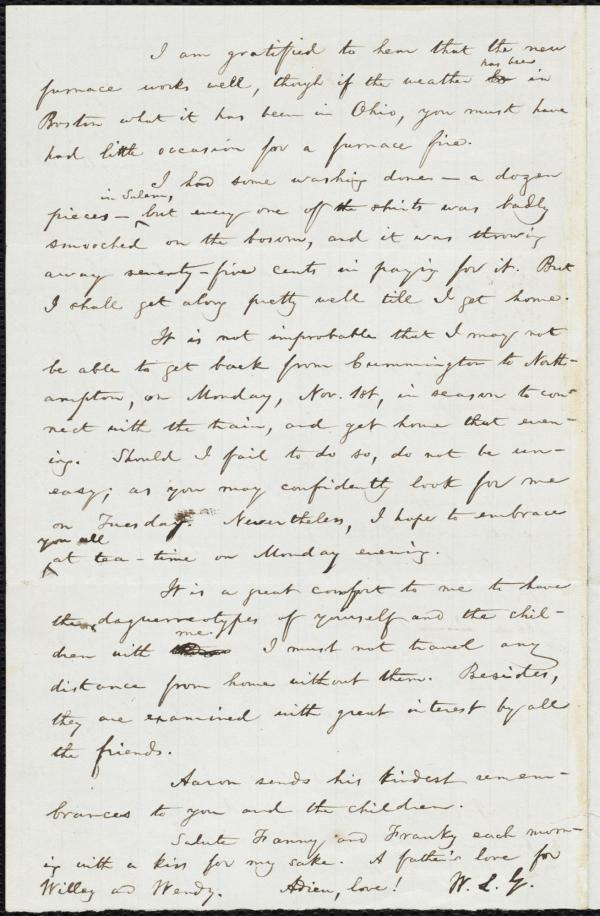 I am gratified to hear that the new
furnace works well, though if the weather has been in
Boston what it has been in Ohio, you must have
had little occasion for a furnace fire.
I had some washing done — a dozen
pieces — in Salem, but every one of the shirts was badly
smooched on the bosom, and it was throwing
away seventy-five cents in paying for it. But
I shall get along pretty well till I get home.
It is not improbable that I may not
be able to get back from Cummington to North-
ampton, on Monday, Nov. 1st, in season to con-
nect with the train, and get home that even-
ing. Should I fail to do so, do not be un-
easy; as you may confidently look for me
on Tuesday. Nevertheless, I hope to embrace
you all at tea-time on Monday evening.
It is a great comfort to me to have
the daguerreotypes of yourself and the chil-
dren with me. I must not travel any
distance from home without them. Besides,
they are examined with great interest by all
the friends.
Aaron sends his kindest remem-
brances to you and the children.
Salute Fanny and Franky each morn-
ing with a kiss for my sake. A father's love for
Willey and Wendy. Adieu, love! W. L. G.